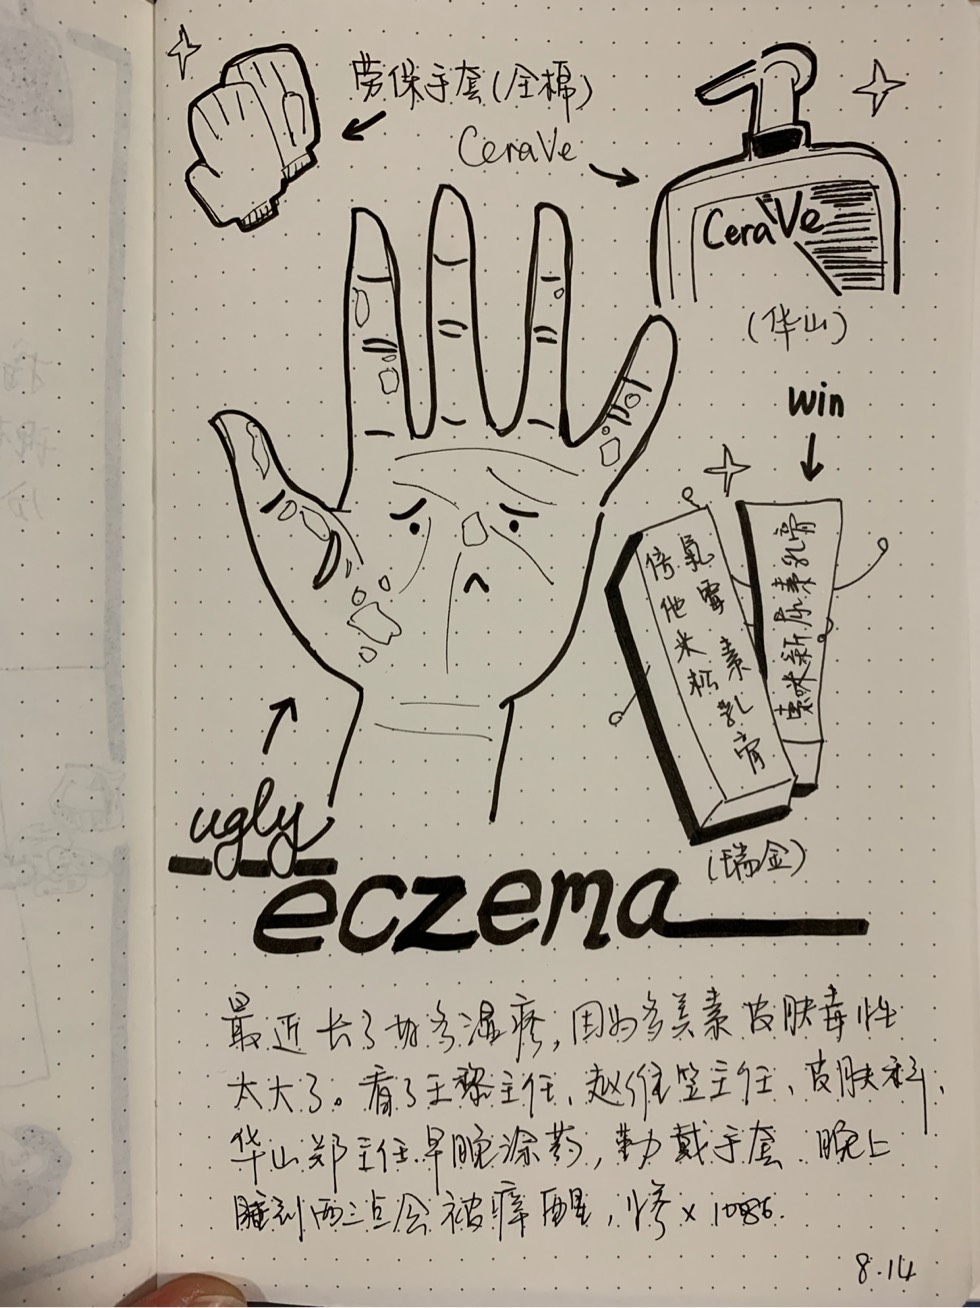 劳保手套(全棉)
CeraVe
CeraVe
(华山)
win
倍他米松
氧霉素乳膏
新尿素乳膏
(瑞金)
ugly
eczema
最近长了好多湿疹,因为多美素皮肤毒性
太大了。看了王黎主任、赵维笠主任、皮肤科、
华山郑主任早晚涂药,勤戴手套 晚上
睡到两三点会被痒醒,惨×10086.
8.14